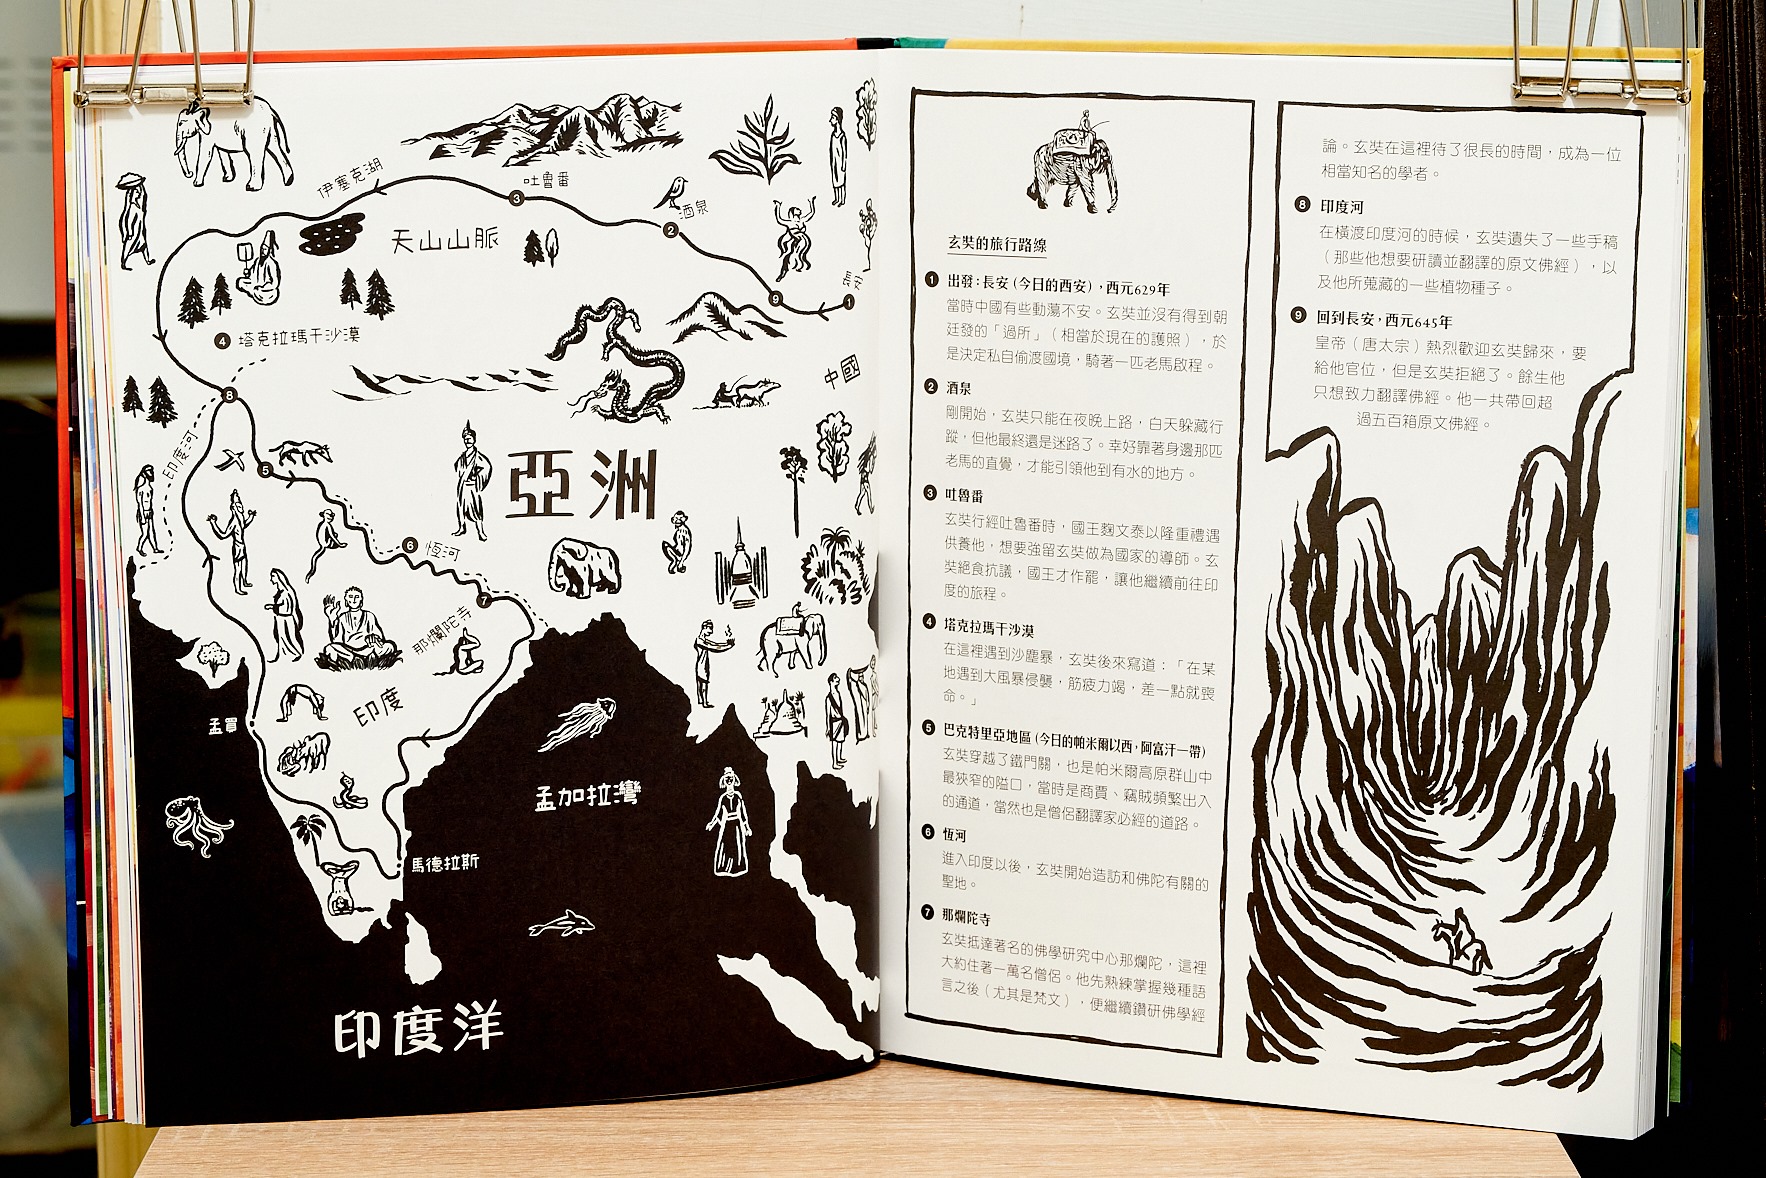 伊塞克湖
吐魯番
酒泉
天山山脈
長安
塔克拉瑪干沙漠
中國
印度河
亞洲
恆河
那爛陀寺
印度
孟買
孟加拉灣
馬德拉斯
印度洋
玄奘的旅行路線
1 出發：長安（今日的西安），西元629年
當時中國有些動蕩不安。玄奘並沒有得到朝
廷發的「過所」（相當於現在的護照），於
是決定私自偷渡國境，騎著一匹老馬啟程。
2 酒泉
剛開始，玄奘只能在夜晚上路，白天躲藏行
蹤，但他最終還是迷路了。幸好靠著身邊那匹
老馬的直覺，才能引領他到有水的地方。
3 吐魯番
玄奘行經吐魯番時，國王麴文泰以隆重禮遇
供養他，想要強留玄奘做為國家的導師。玄
奘絕食抗議，國王才作罷，讓他繼續前往印
度的旅程。
4 塔克拉瑪干沙漠
在這裡遇到沙塵暴，玄奘後來寫道：「在某
地遇到大風暴侵襲，筋疲力竭，差一點就喪
命。」
5 巴克特里亞地區（今日的帕米爾以西，阿富汗一帶）
玄奘穿越了鐵門關，也是帕米爾高原群山中
最狹窄的隘口，當時是商賈、竊賊頻繁出入
的通道，當然也是僧侶翻譯家必經的道路。
6 恆河
進入印度以後，玄奘開始造訪和佛陀有關的
聖地。
7 那爛陀寺
玄奘抵達著名的佛學研究中心那爛陀，這裡
大約住著一萬名僧侶。他先熟練掌握幾種語
言之後（尤其是梵文），便繼續鑽研佛學經
論。玄奘在這裡待了很長的時間，成為一位
相當知名的學者。
8 印度河
在橫渡印度河的時候，玄奘遺失了一些手稿
（那些他想要研讀並翻譯的原文佛經），以
及他所蒐藏的一些植物種子。
9 回到長安，西元645年
皇帝（唐太宗）熱烈歡迎玄奘歸來，要
給他官位，但是玄奘拒絕了。餘生他
只想致力翻譯佛經。他一共帶回超
過五百箱原文佛經。